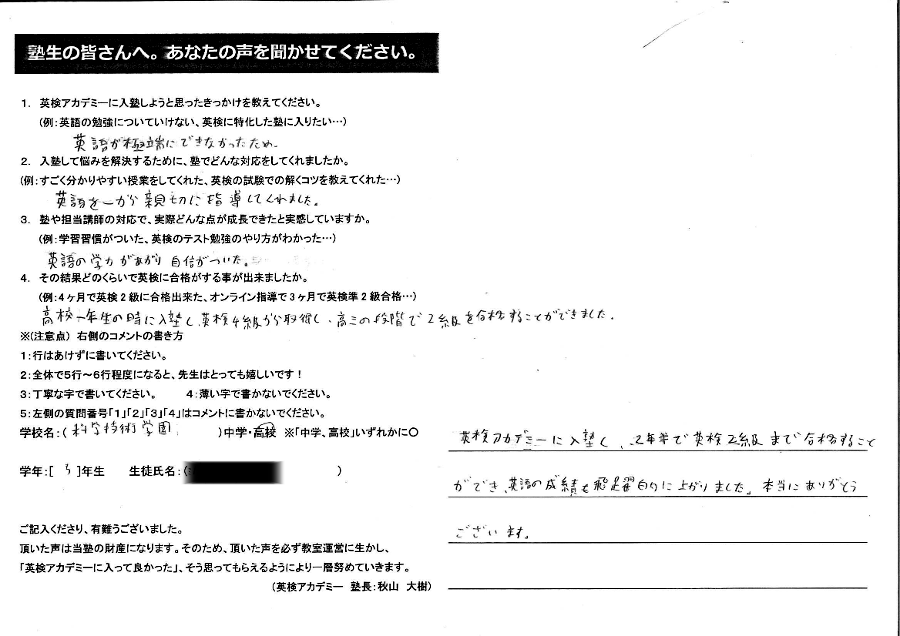 塾生の皆さんへ。あなたの声を聞かせてください。
1. 英検アカデミーに入塾しようと思ったきっかけを教えてください。
(例:英語の勉強についていけない、英検に特化した塾に入りたい…)
英語が極端にできなかったため。
2. 入塾して悩みを解決するために、塾でどんな対応をしてくれましたか。
(例:すごく分かりやすい授業をしてくれた、英検の試験での解くコツを教えてくれた…)
英語を一から親切に指導してくれました。
3. 塾や担当講師の対応で、実際どんな点が成長できたと実感していますか。
(例:学習習慣がついた、英検のテスト勉強のやり方がわかった…)
英語の学力があがり自信がついた。
4. その結果どのくらいで英検に合格がする事が出来ましたか。
(例:4ヶ月で英検2級に合格出来た、オンライン指導で3ヶ月で英検準2級合格…)
高校一年生の時に入塾し英検4級から取得し、高三の段階で2級を合格することができました。
※(注意点) 右側のコメントの書き方
1:行はあけずに書いてください。
2:全体で5行~6行程度になると、先生はとっても嬉しいです!
3:丁寧な字で書いてください。 4:薄い字で書かないでください。
5:左側の質問番号「1」「2」「3」「4」はコメントに書かないでください。
学校名:( 科学技術学園 )中学・高校 ※「中学、高校」いずれかに○
学年:[ 3 ]年生 生徒氏名:( )
ご記入くださり、有難うございました。
頂いた声は当塾の財産になります。そのため、頂いた声を必ず教室運営に生かし、
「英検アカデミーに入って良かった」、そう思ってもらえるようにより一層努めていきます。
(英検アカデミー 塾長:秋山 大樹)
英検アカデミーに入塾し、2年半で英検2級まで合格すること
ができ、英語の成績も飛躍的に上がりました。本当にありがとう
ございます。